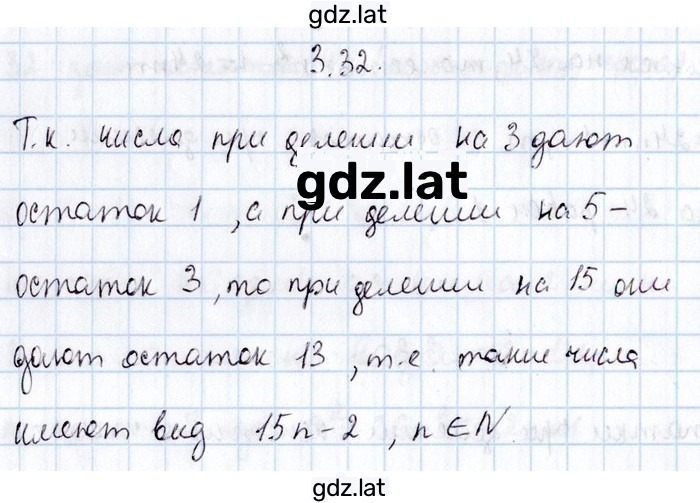 gdz.lat
3.32.
Т.к. числа при делении на 3 дают
gdz.lat
остаток 1, а при делении на 5 –
остаток 3, то при делении на 15 они
дают остаток 13, т.е. такие числа
имеют вид 15n-2, n∈N.
gdz.lat